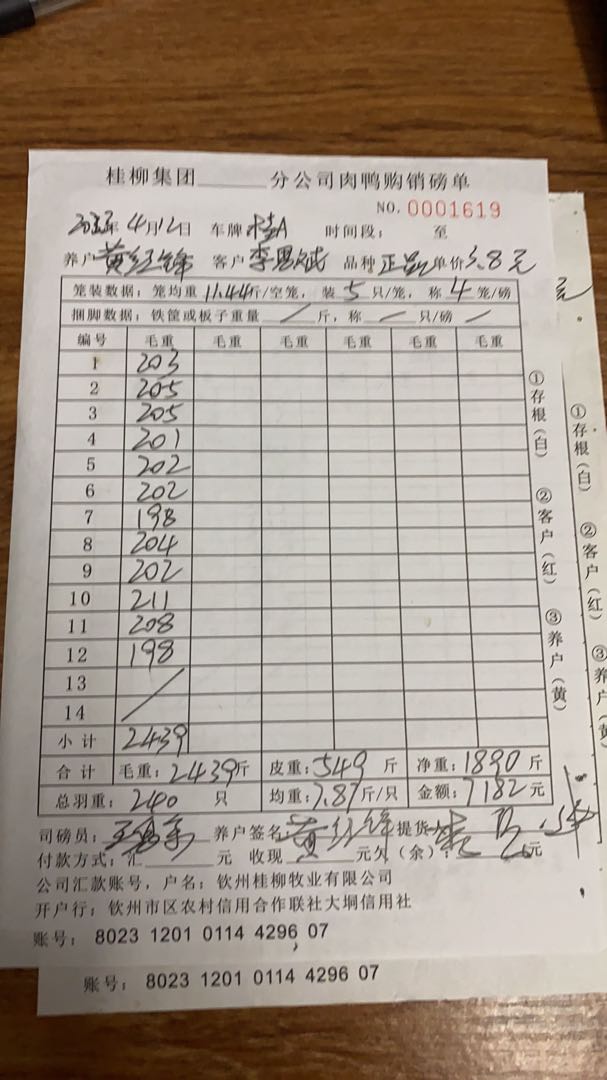 桂柳集团______分公司肉鸭购销磅单
NO. 0001619
年4月12日 车牌 桂A 时间段： 至
养户 黄红锋 客户 李恩斌 品种 正品 单价3.8元
笼装数据：笼均重11.44斤/空笼，装5只/笼，称4笼/磅
捆脚数据：铁筐或板子重量／斤，称／只/磅／
编号 毛重 毛重 毛重 毛重 毛重 毛重
1 203
2 205
3 205
4 201
5 202
6 202
7 198
8 204
9 202
10 211
11 208
12 198
13
14
小计 2439
合计 毛重：2439斤 皮重：549斤 净重：1890斤
总羽重：240只 均重：7.87斤/只 金额：7182元
司磅员： 养户签名 黄红锋 提货
付款方式：汇______元 收现______元欠（余）：元
公司汇款账号，户名：钦州桂柳牧业有限公司
开户行：钦州市区农村信用合作联社大垌信用社
账号：8023 1201 0114 4296 07
①存根（白） ②客户（红） ③养户（黄）
元
①存根（白） ②客户（红） ③养户（黄）
账号：8023 1201 0114 4296 07